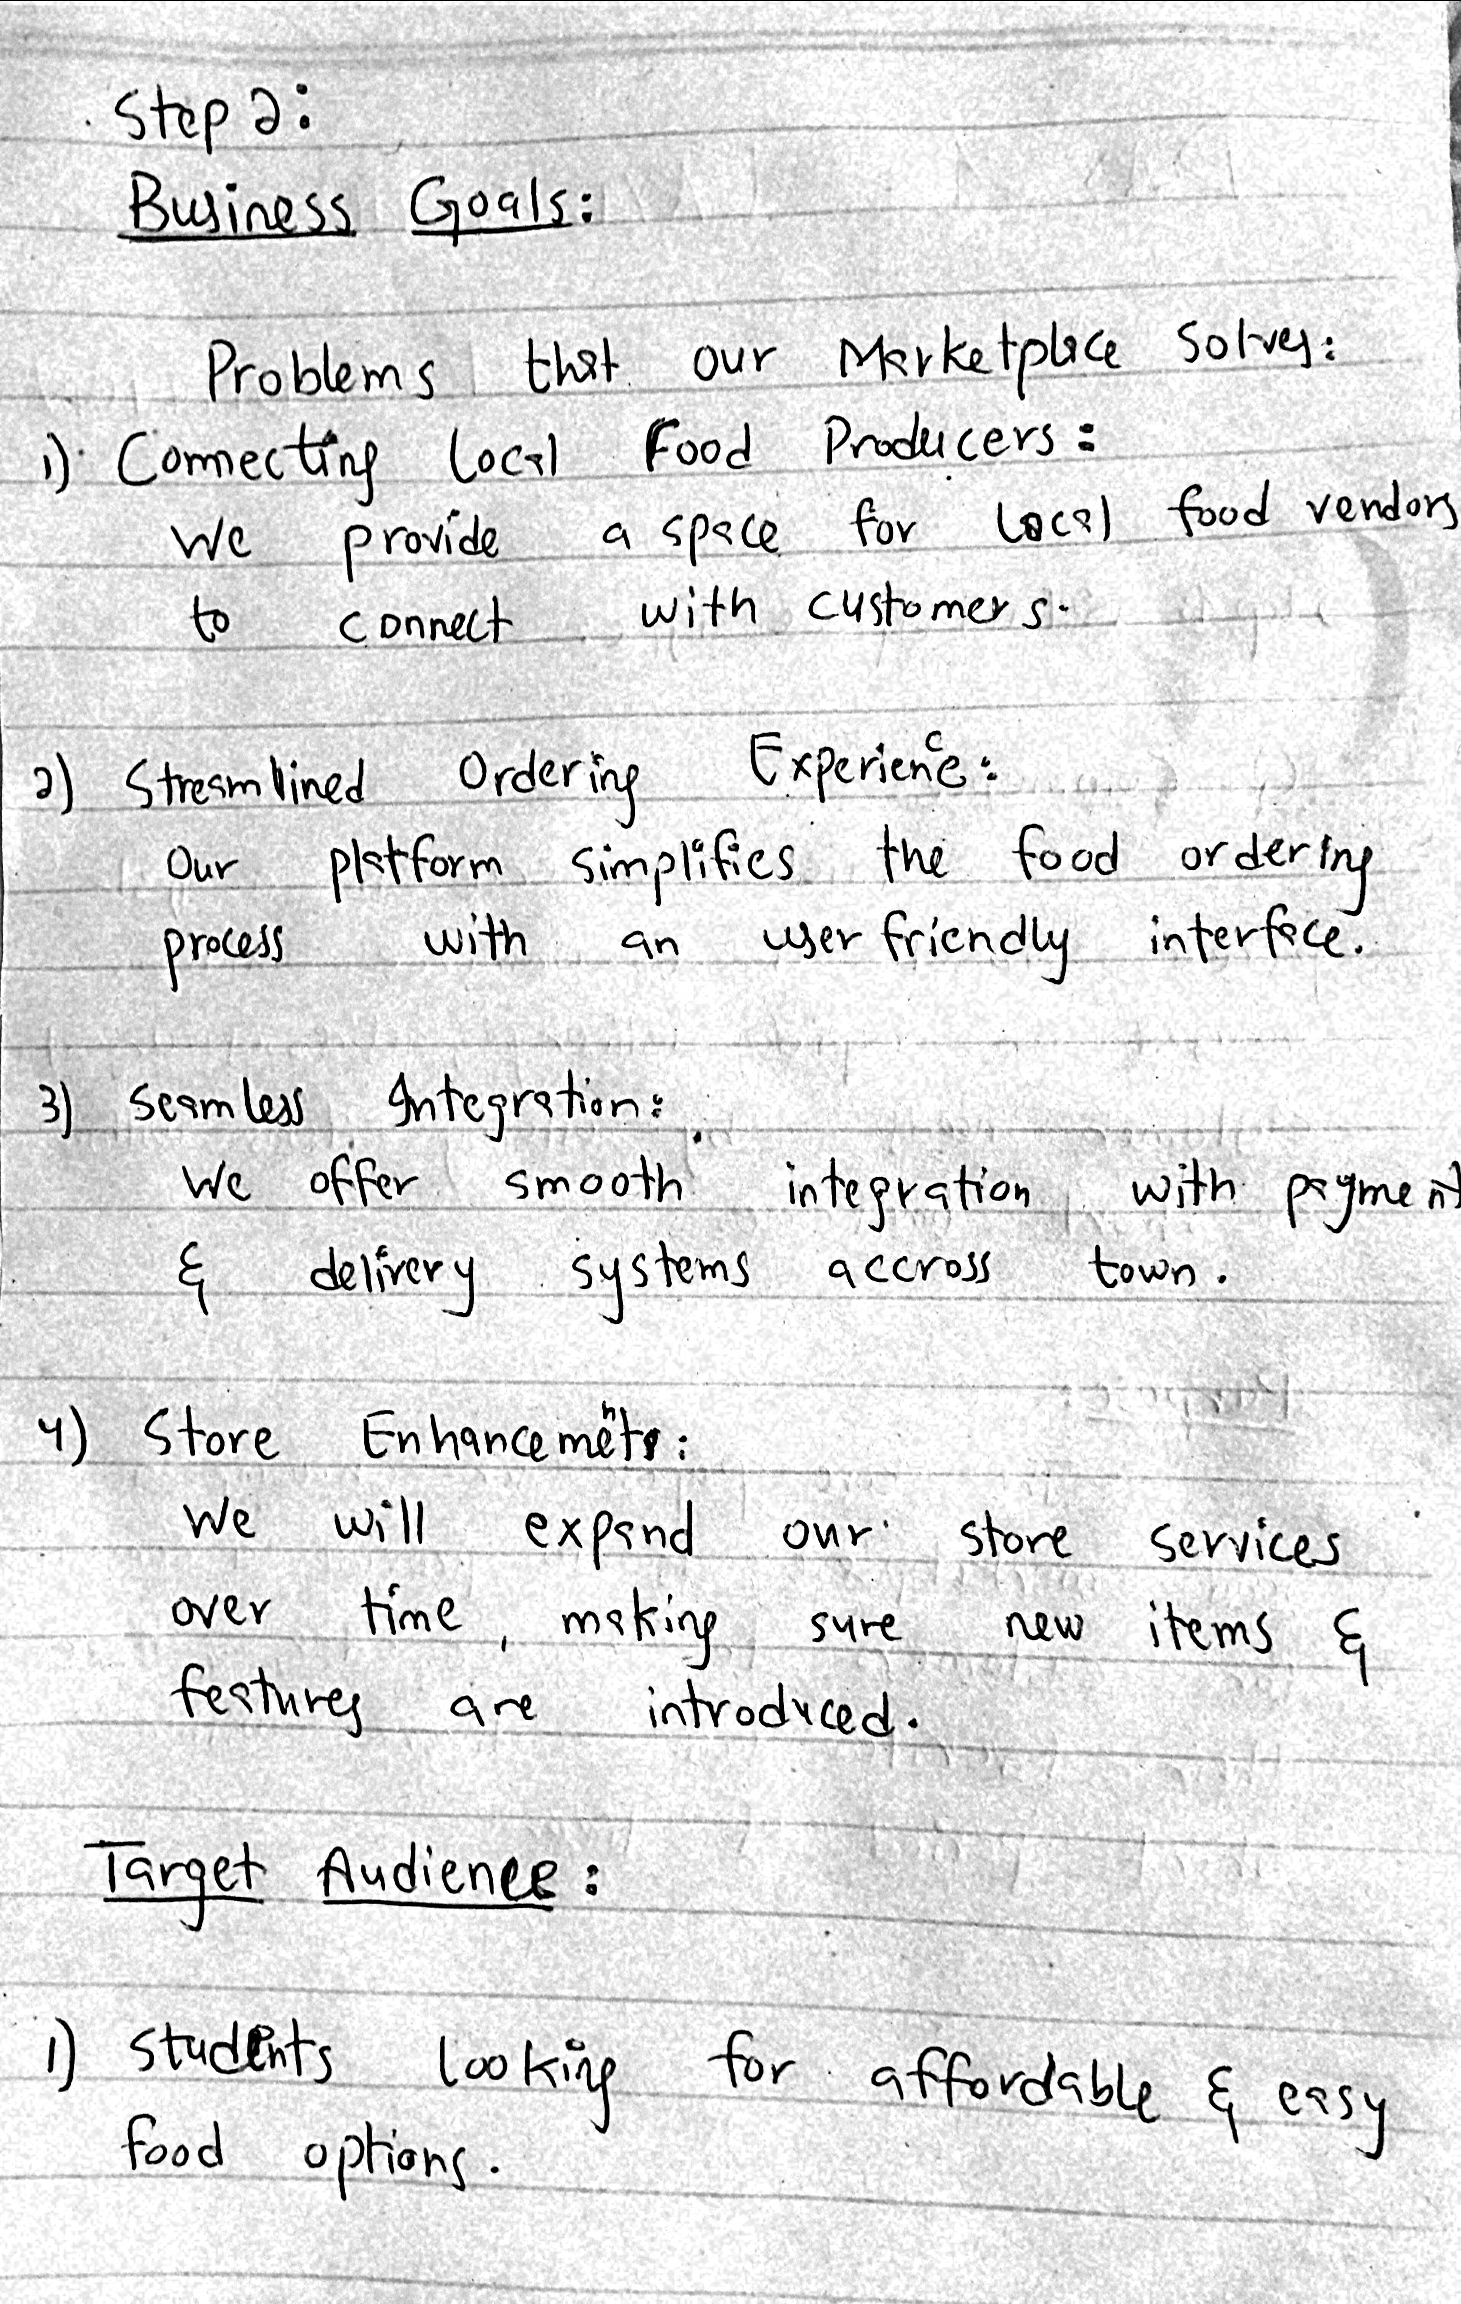 Step 2:
Business Goals:
Problems that our Marketplace Solves:
1) Connecting Local Food Producers:
We provide a space for local food vendors
to connect with customers.
2) Streamlined Ordering Experience:
Our platform simplifies the food ordering
process with an user friendly interface.
3) Seamless Integration:
We offer smooth integration with payment
& delivery systems accross town.
4) Store Enhancements:
We will expand our store services
over time, making sure new items &
features are introduced.
Target Audience:
1) Students looking for affordable & easy
food options.